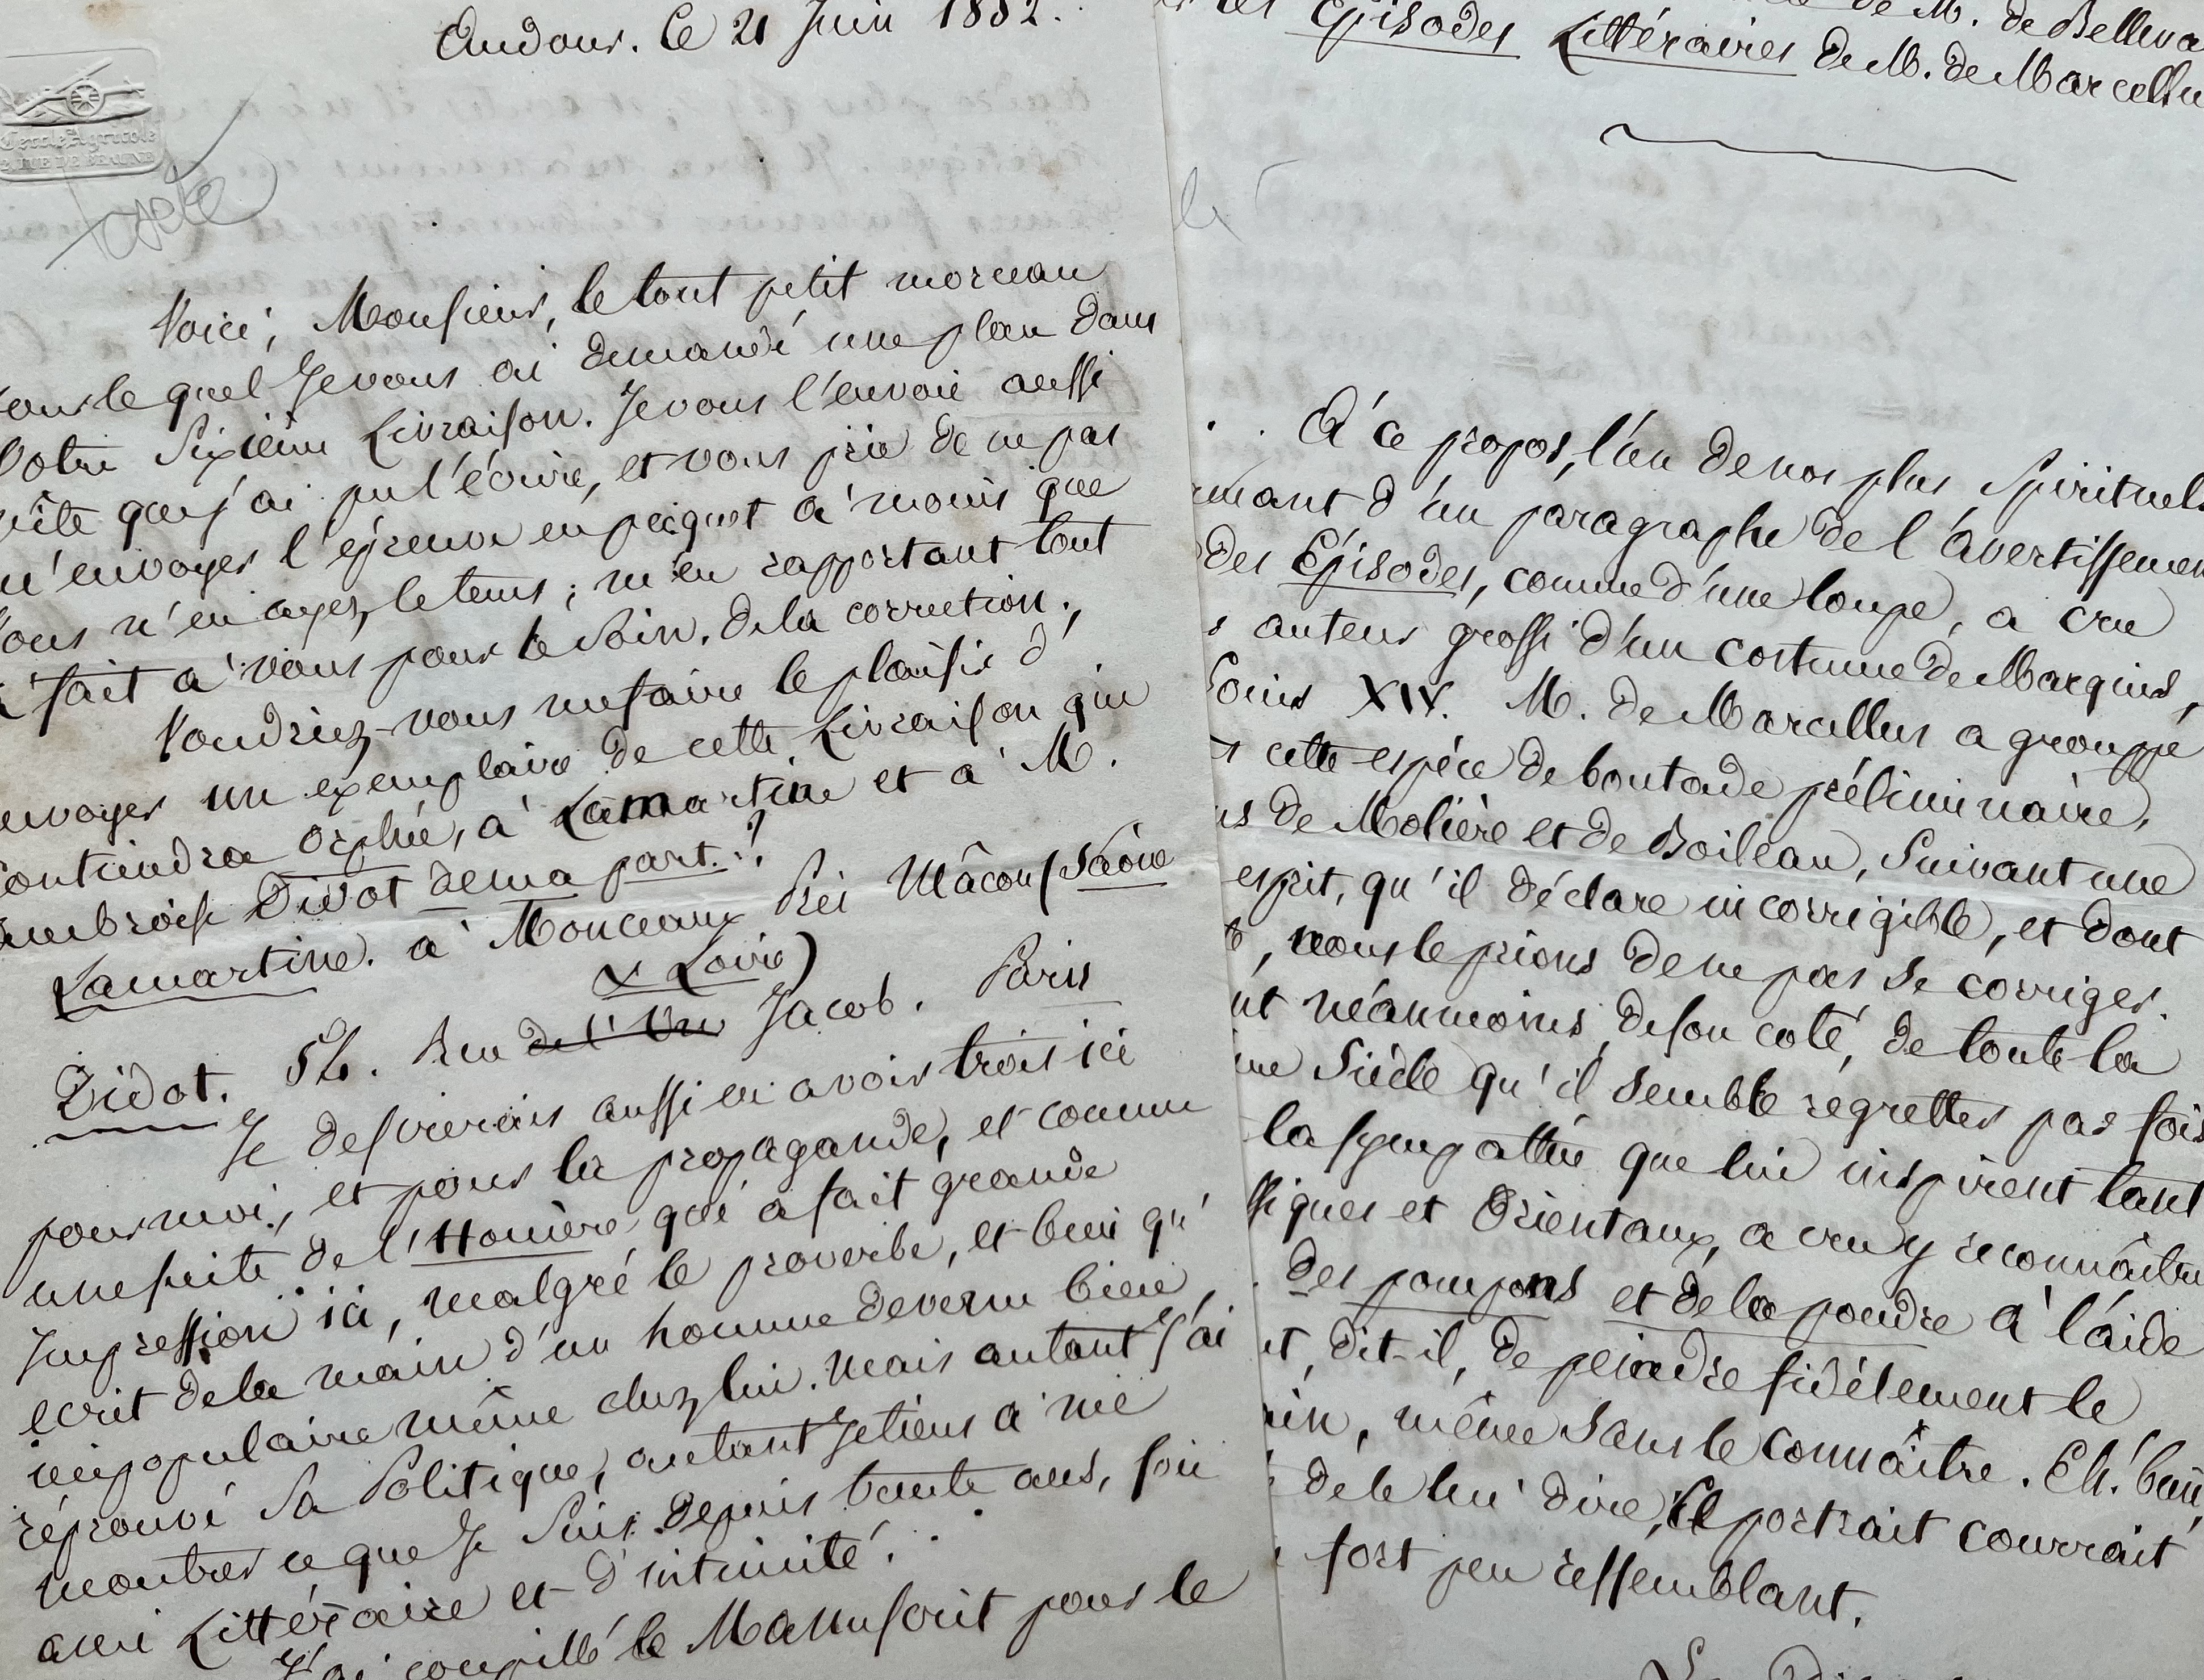 Audour. Ce 21 Juin 1852.
Cercle Agricole
RUE DE BEAUNE
Voici, Monsieur, le tout petit morceau
le quel Je vous ai demandé une place dans
Votre Sixième Livraison. Je vous l'envoie aussi
vite que j'ai pu l'écrire, et vous prie de ne pas
m'envoyer l'épreuve en paquet à moins que
vous n'en ayez le tems ; m'en rapportant tout
à fait à vous pour le Soin de la correction.
Voudriez-vous me faire le plaisir d'
envoyer un exemplaire de cette Livraison qui
contiendra Orphée, à Lamartine et à M.
Ambroise Didot de ma part.?
Lamartine. à Monceaux Près Mâcon (Saône
& Loire)
Didot. 56. Rue Jacob. Paris
Je desirerais aussi en avoir trois ici
pour moi, et pour la propagande, et comme
une suite de l'Homère qui a fait grande
Impression ici, malgré le proverbe, et bien qu'
ecrit de la main d'un homme devenu bien
impopulaire même chez lui. Mais autant J'ai
réprouvé Sa Politique, autant Je tiens à me
montrer ce que Je Suis depuis trente ans, son
ami Littéraire et d'intimité.
J'ai le Manuscrit pour le
de M. de
Episodes Littéraires de M. de Marcellu
A ce propos, l'un de nos plus Spirituels
d'un paragraphe de l'avertissemen
des Episodes, comme d'une loupe, a cru
auteur grossi d'un costume de Marquis,
Louis XIV. M. de Marcellus a grouppé
cette espèce de boutade préliminaire,
de Molière et de Boileau, Suivant une
esprit, qu'il déclare incorrigible, et dont
, nous le prions de ne pas Se corriger.
néanmoins, de son coté, de toute la
Siècle qu'il Semble regretter par fois
la sympathie que lui inspirent tant
et Orientaux, a cru y reconnaître
des pompons et de la poudre à l'aide
, dit-il, de peindre fidèlement le
, même Sans le connaître. Eh! bien,
de le lui dire, le portrait courrait
fort peu ressemblant.